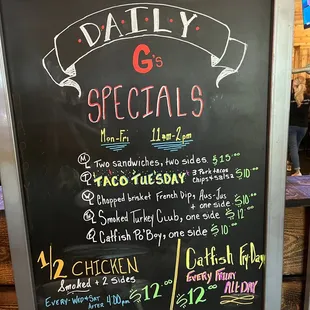 DAILY
G's
SPECIALS
Mon-Fri 11am-2pm
M Two sandwiches, two sides $15.00
T TACO TUESDAY 3 Pork tacos chips & salsa $10.00
Chopped brisket French Dip, + Aus-Jus + one side $10.00
Smoked Turkey Club, one side $12.00
Catfish Po'Boy, one side $10.00
1/2 CHICKEN
Smoked + 2 sides
Every Wed & Sat AFTER 4:00pm $12.00
Catfish Fry-Day
EVERY FRIDAY
ALL-DAY
$12.00